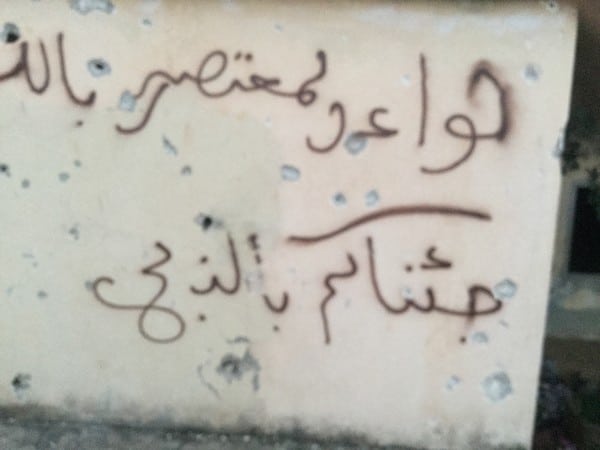 قواعد لمعتصم بالله
جئناكم بألذبح